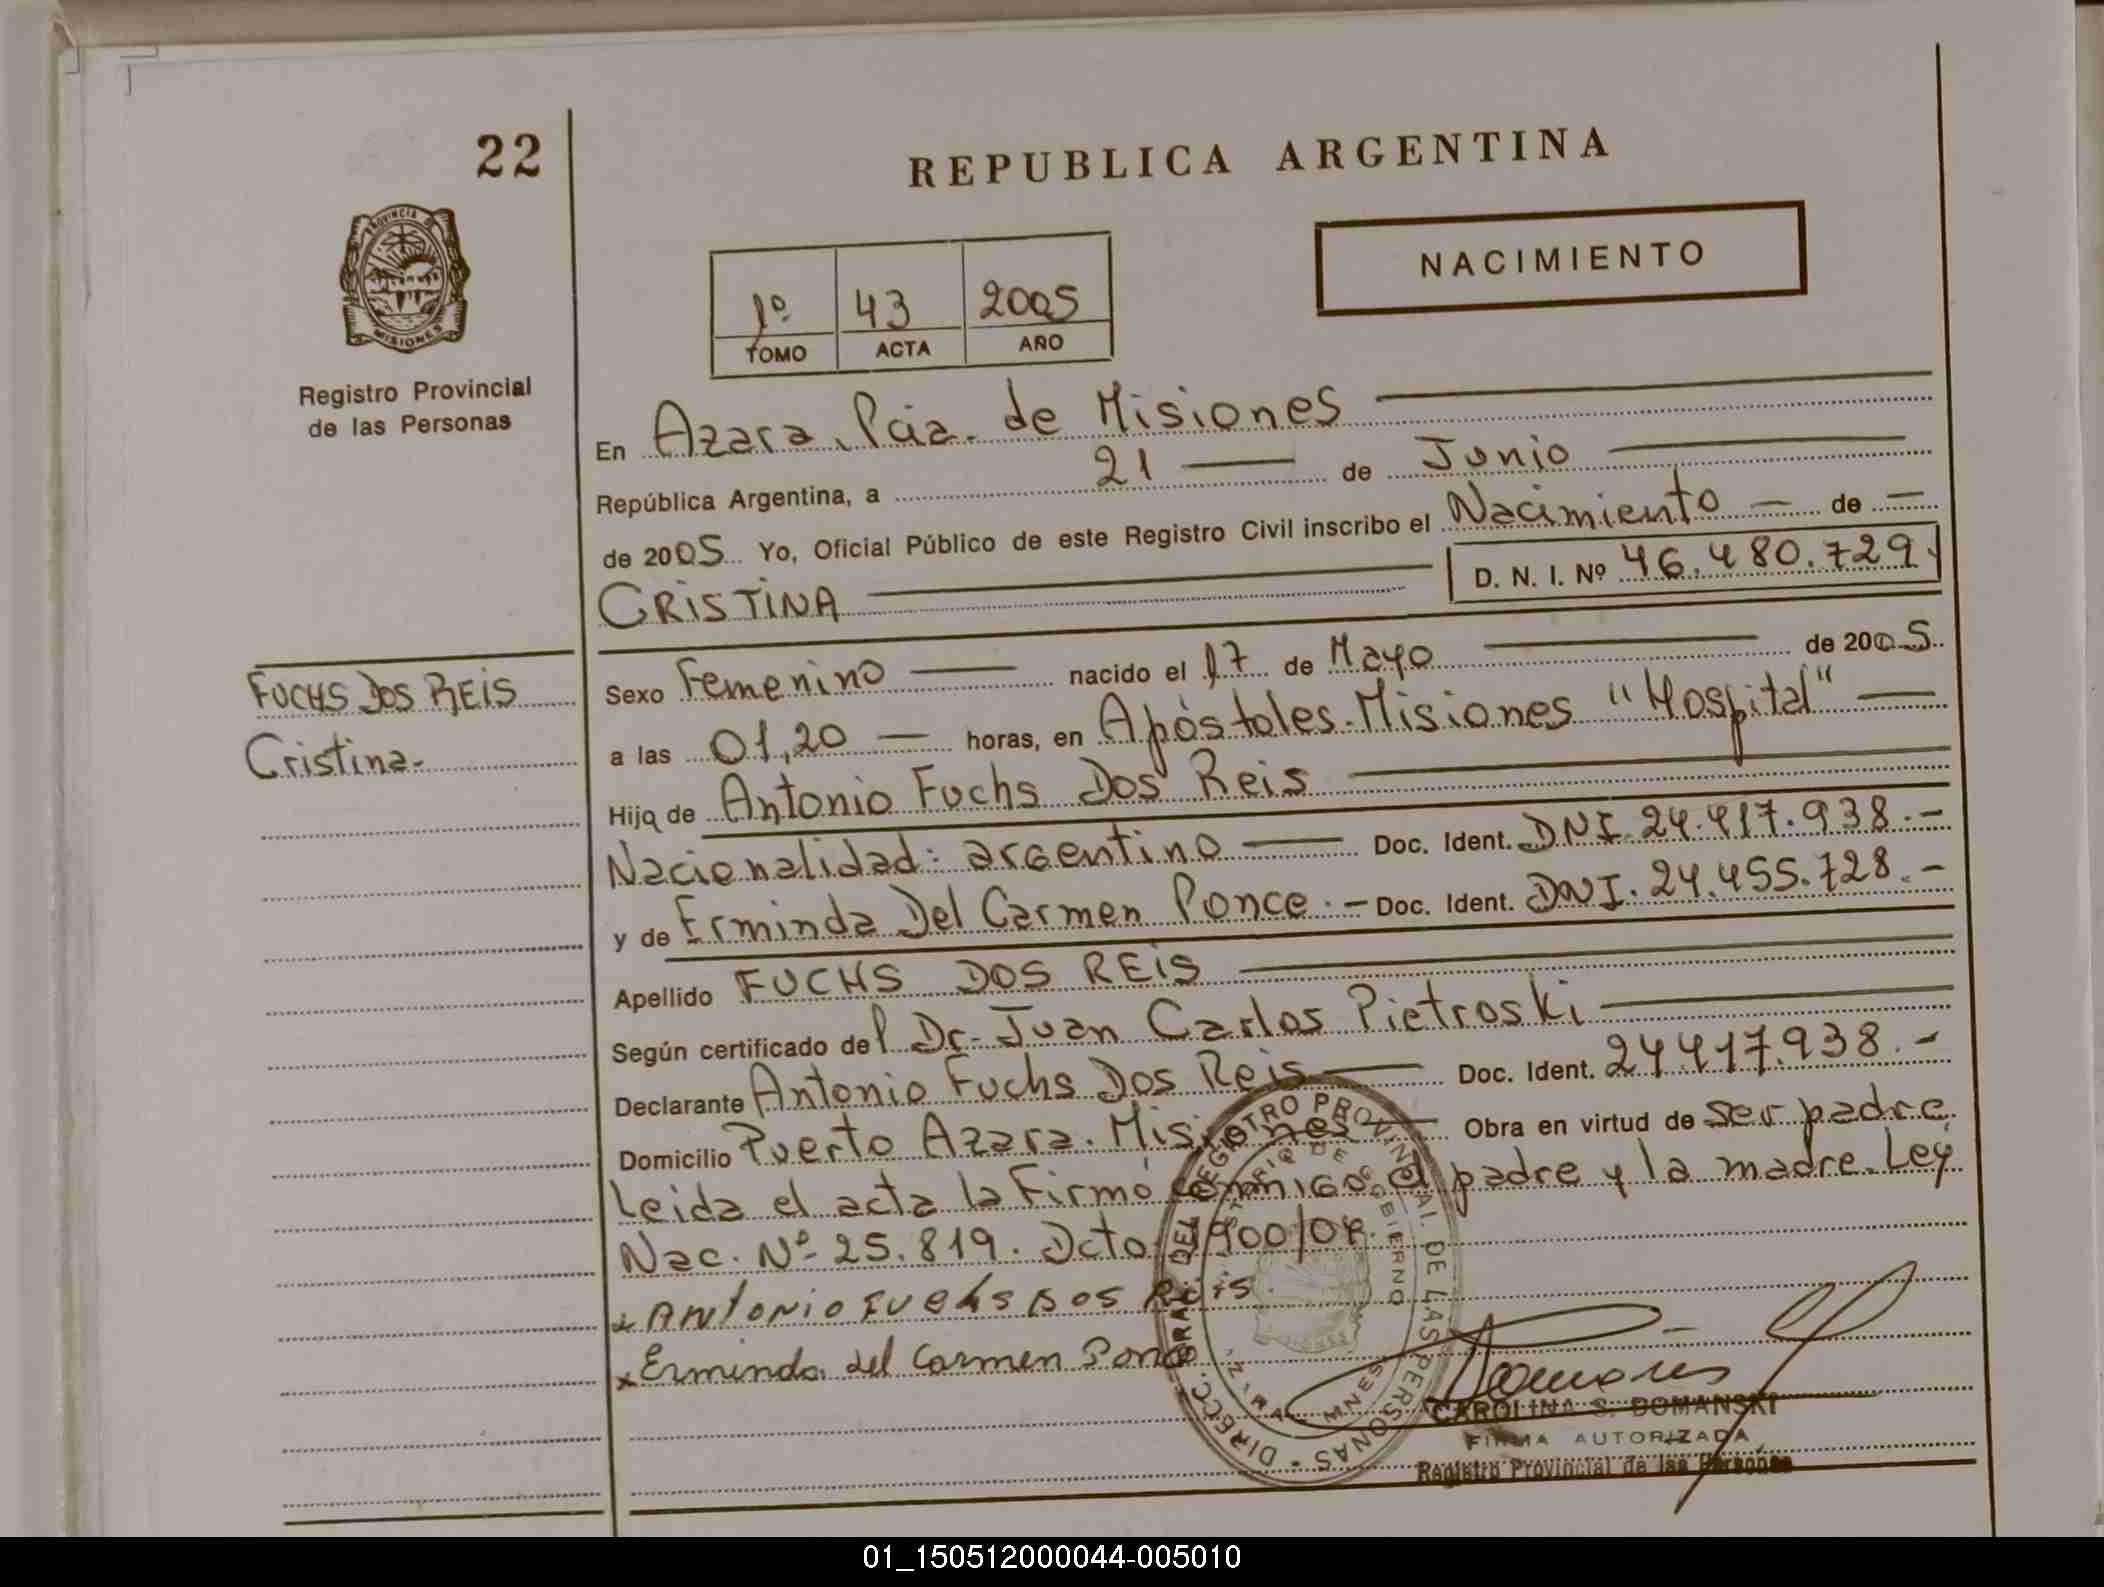 22
REPUBLICA ARGENTINA
PROVINCIA DE
MISIONES
Registro Provincial
de las Personas
NACIMIENTO
1º 43 2005
TOMO ACTA AÑO
En Azara, Pcia. de Misiones
República Argentina, a 21 de Junio
de 2005 Yo, Oficial Público de este Registro Civil inscribo el Nacimiento de
CRISTINA D. N. I. Nº 46.480.729
FUCHS DOS REIS
Cristina.-
Sexo Femenino nacido el 17 de Mayo de 2005.
a las 01,20 horas, en Apóstoles-Misiones "Hospital"
Hija de Antonio Fuchs Dos Reis
Nacionalidad: argentino Doc. Ident. DNI. 24.417.938.-
y de Erminda Del Carmen Ponce.- Doc. Ident. DNI. 24.455.728.-
Apellido FUCHS DOS REIS
Según certificado del Dr. Juan Carlos Pietroski
Declarante Antonio Fuchs Dos Reis Doc. Ident. 24.417.938.-
Domicilio Puerto Azara. Misiones Obra en virtud de ser padre.
Leida el acta la Firmó conmigo el padre y la madre. Ley
Nac. Nº 25.819. Dcto 1900/04.
x Antonio Fuchs Dos Reis
x Erminda del Carmen Ponce
DIRECC. GRAL. DEL REGISTRO PROVINCIAL DE LAS PERSONAS
DE GOBIERNO
MNES
CAROLINA S. DOMANSKI
FIRMA AUTORIZADA
Registro Provincial de las Personas
01_150512000044-005010